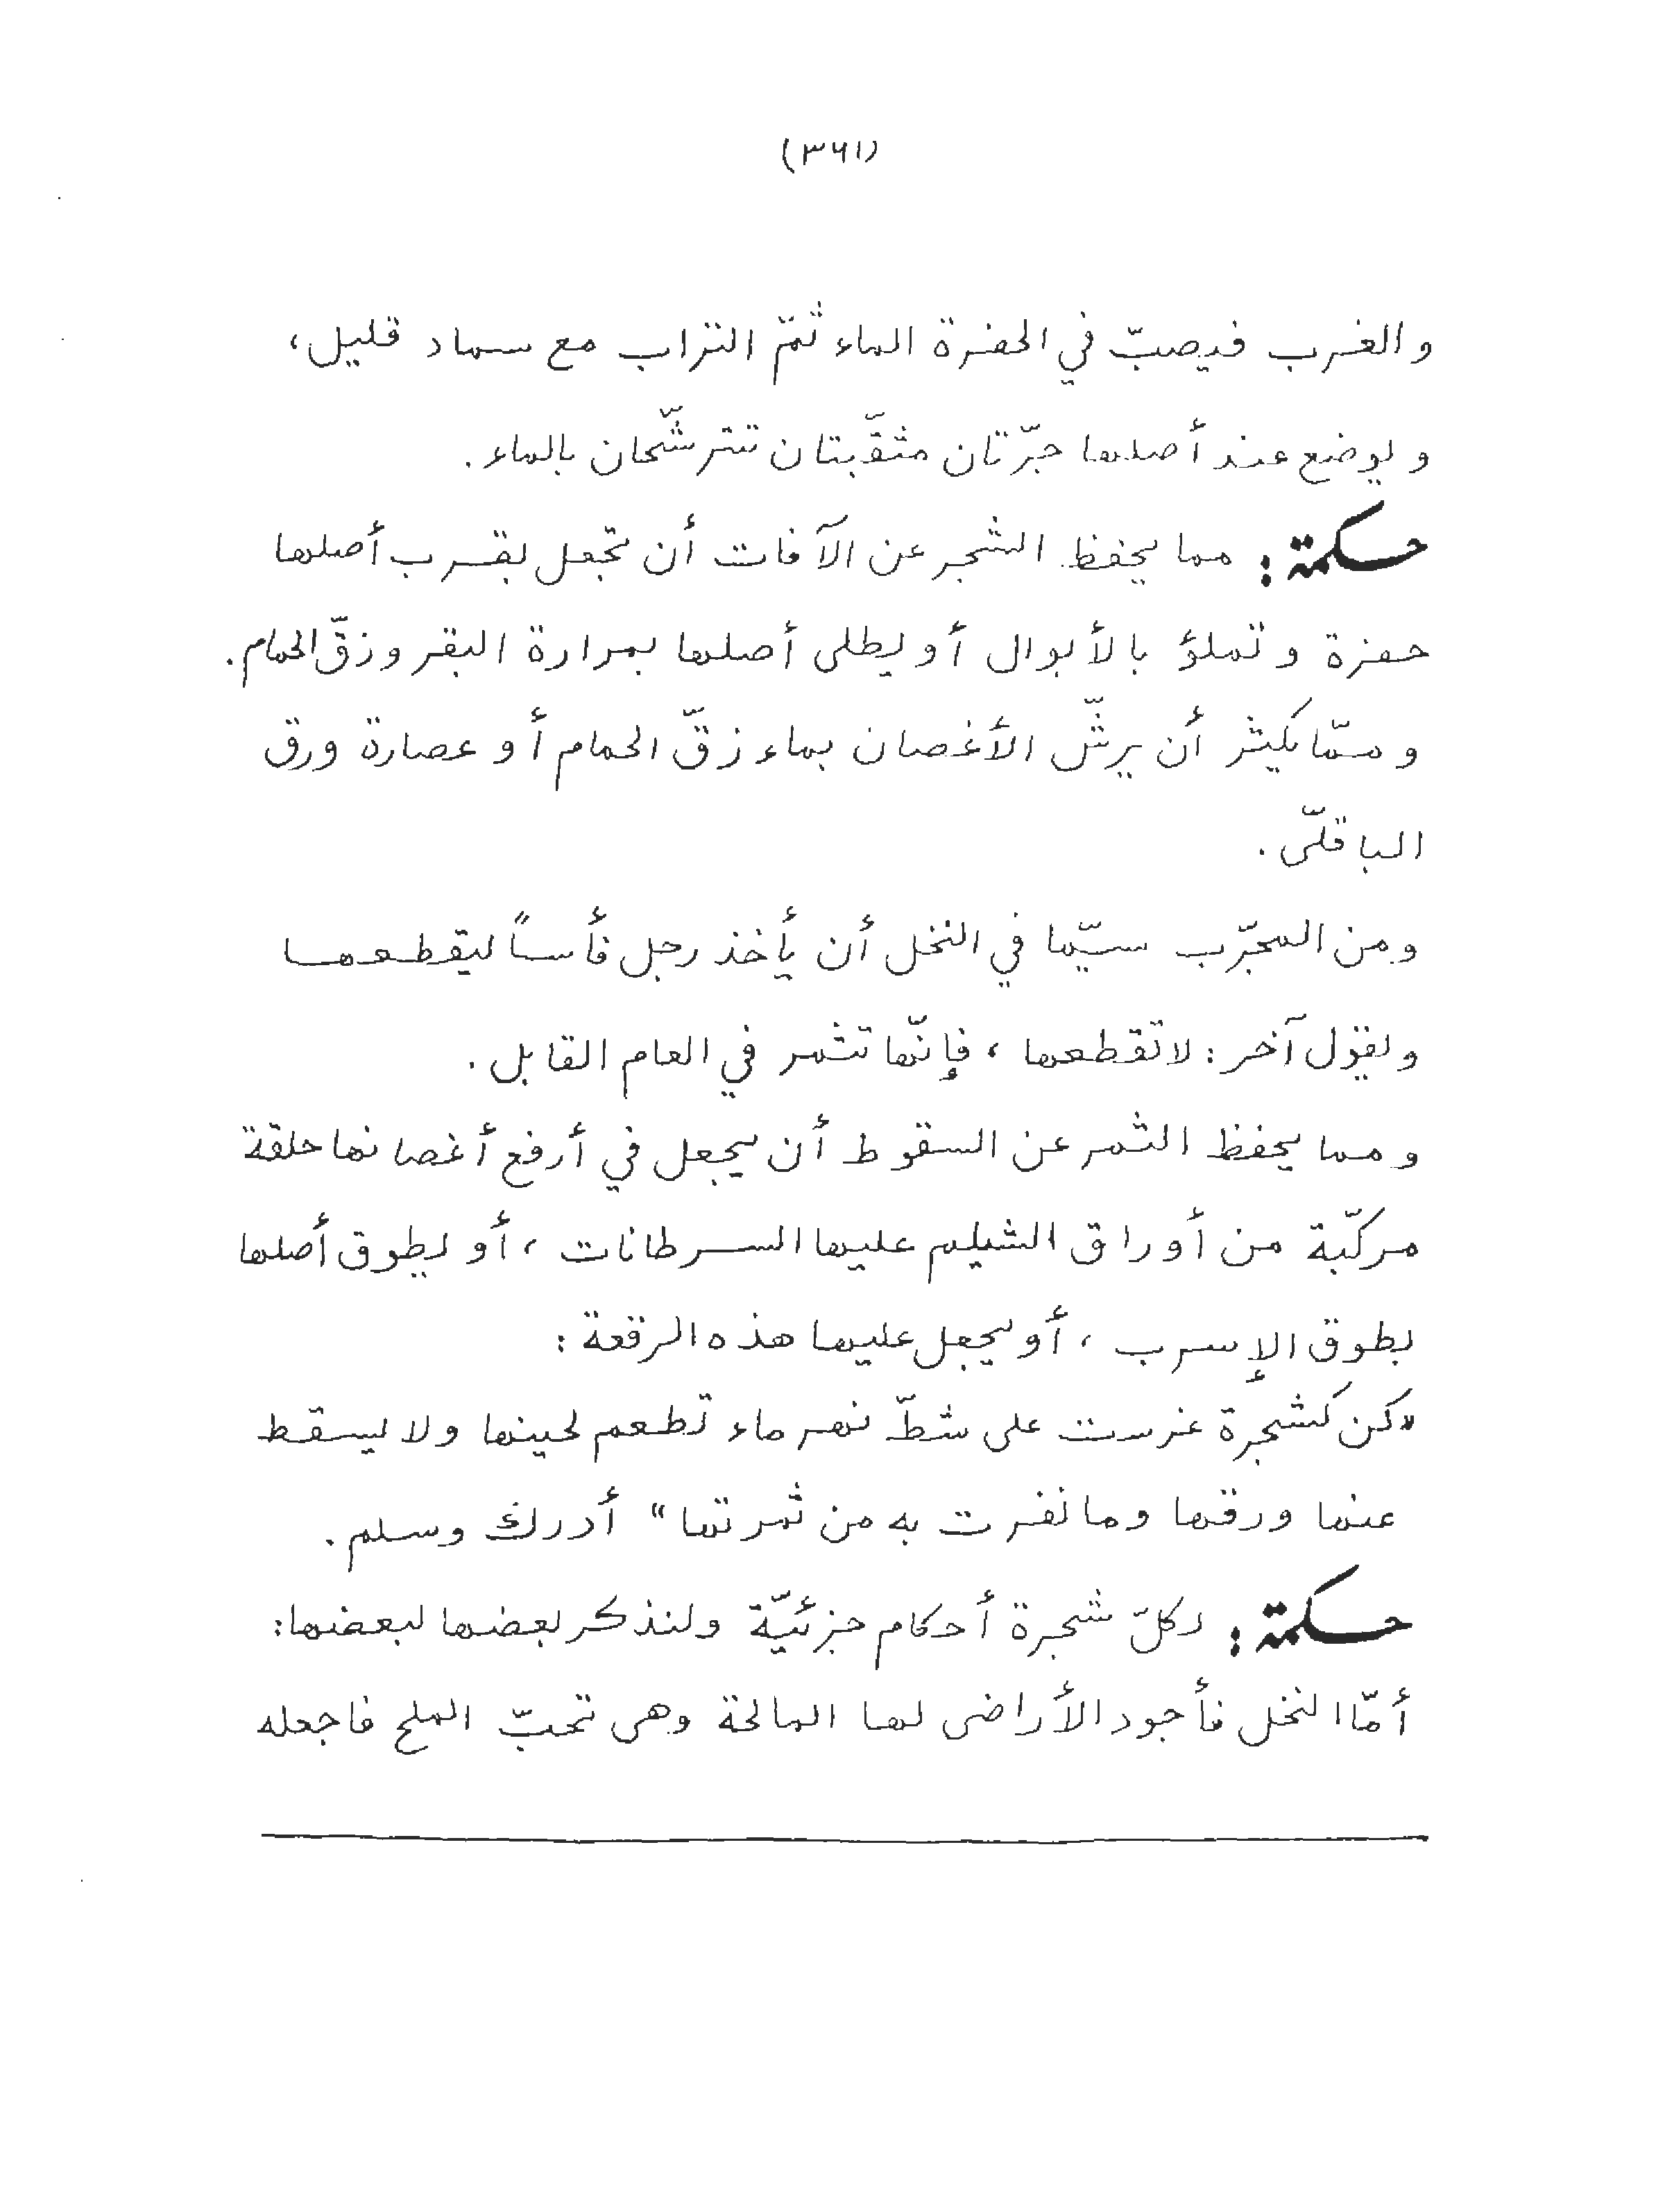 (٣٦١)
والغرب فيصبّ في الحفرة الماء ثمّ التراب مع سماد قليل،
ويوضع عند أصلها جرّتان مثقّبتان تترشّحان بالماء.
حكمة: مما يحفظ الشجر عن الآفات أن تجعل بقرب أصلها
حفرة وتملؤ بالأبوال أو يطلى أصلها بمرارة البقر وزقّ الحمام.
وممّا يكثر أن يرشّ الأغصان بماء زقّ الحمام أو عصارة ورق
الباقلّى.
ومن المجرّب سيّما في النخل أن يأخذ رجل فأساً ليقطعها
ويقول آخر: لا تقطعها، فإنّها تثمر في العام القابل.
ومما يحفظ الثمر عن السقوط أن يجعل في أرفع أغصانها حلقة
مركّبة من أوراق الشيلم عليها السرطانات، أو يطوق أصلها
بطوق الإسرب، أو يجعل عليها هذه الرقعة:
"كن كشجرة غرست على شطّ نهر ماء تطعم لحينها ولا يسقط
عنها ورقها وما نفرت به من ثمرتها" أدرك وسلم.
حكمة: لكلّ شجرة أحكام جزئيّة ولنذكر بعضها لبعضها:
أمّا النخل فأجود الأراضي لها المالحة وهي تحبّ الملح فاجعله